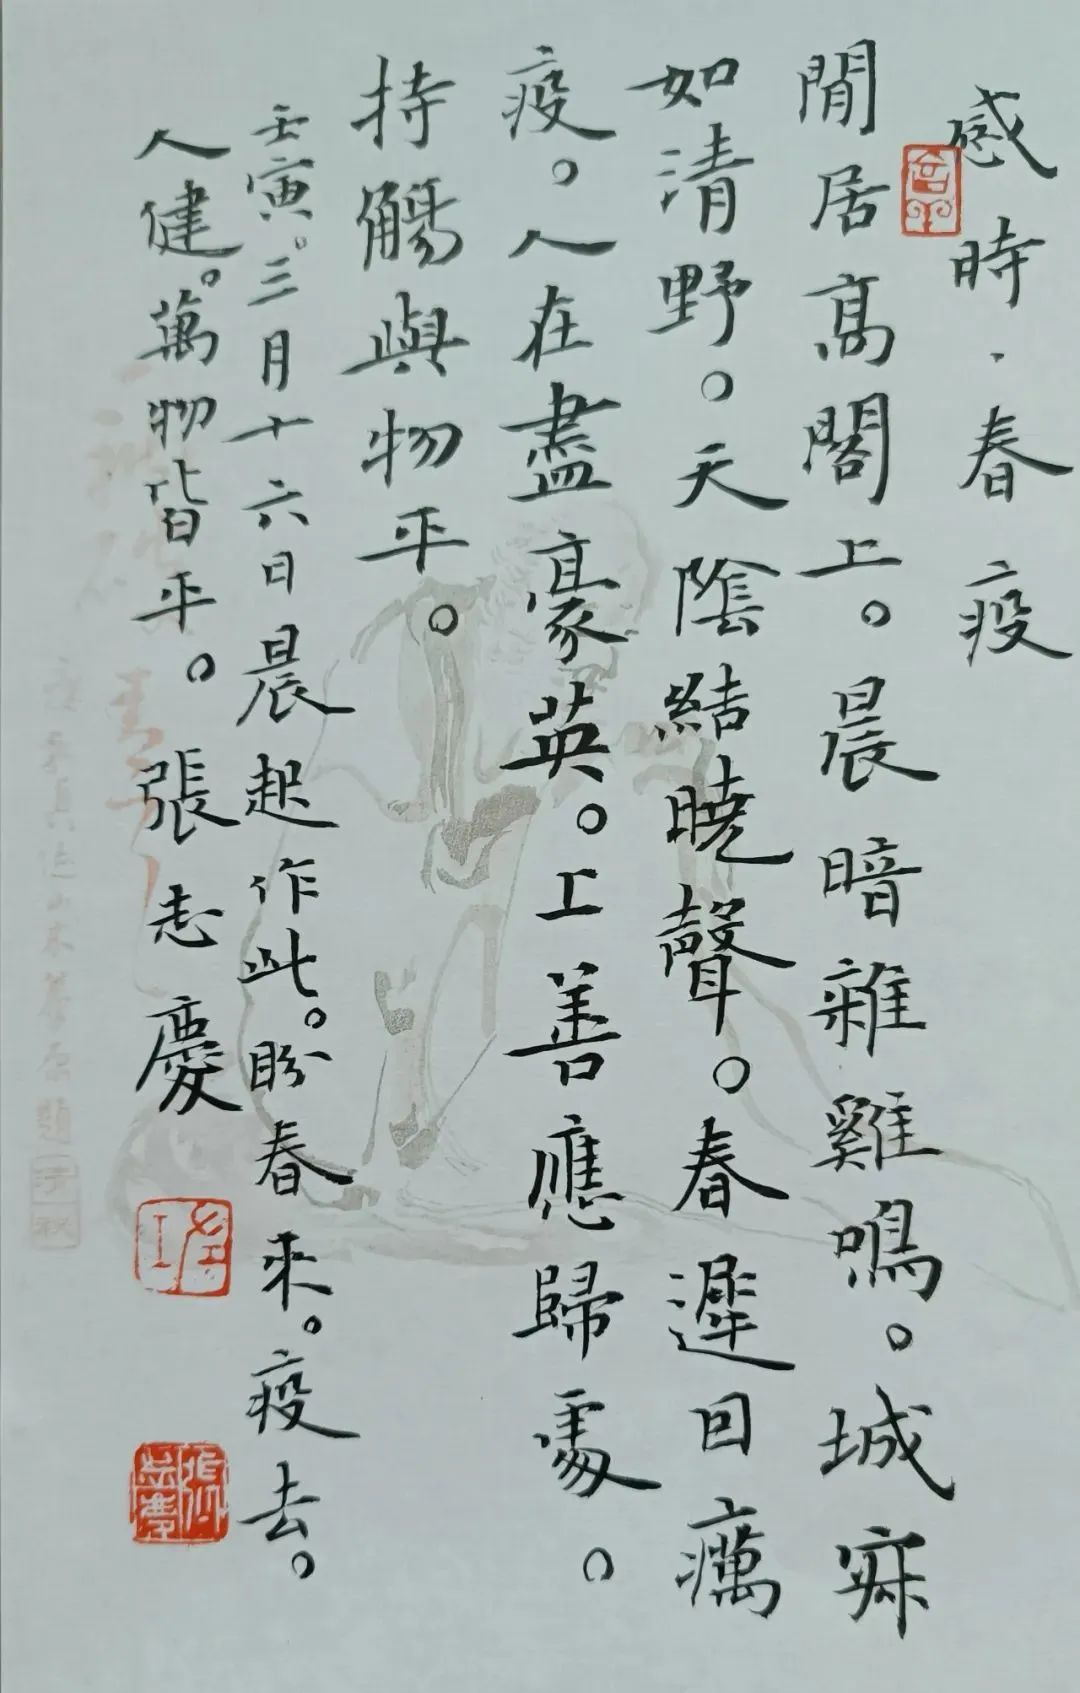 感時·春疫
閒居高閣上。晨暗雜雞鳴。城寂
如清野。天陰結曉聲。春遲因癘
疫。人在盡豪英。工善應歸處。
持觴與物平。
壬寅。三月十六日晨起作此。盼春來。疫去。
人健。萬物皆平。張志慶